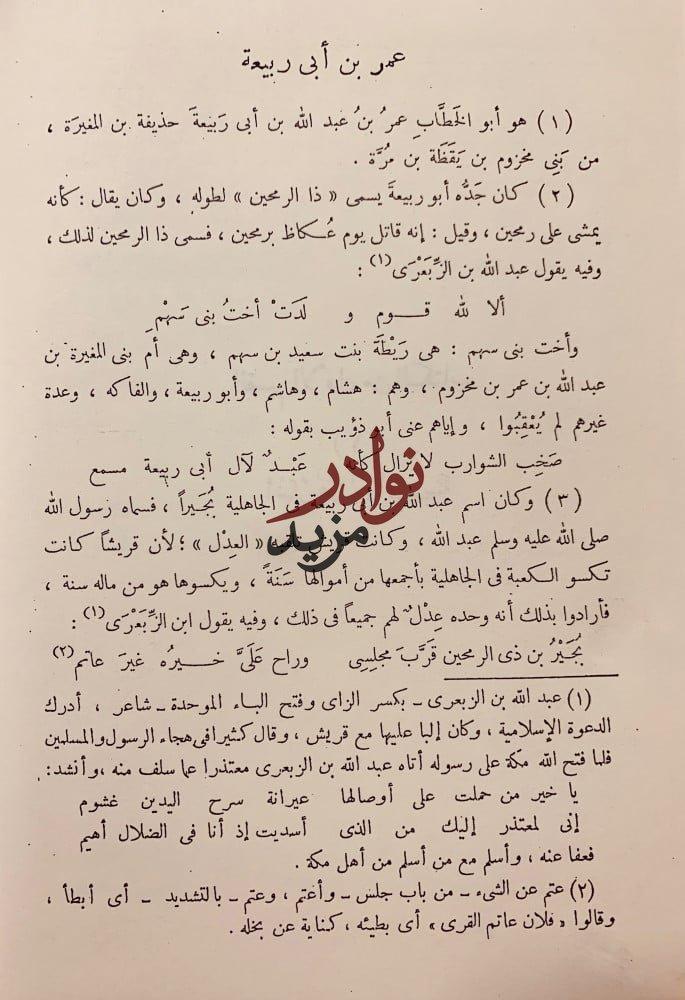 عمر بن أبى ربيعة
(١) هو أبو الخَطَّابِ عمرُ بنُ عبد الله بن أبى رَبيعةَ حذيفة بن المغيرَة ،
من بَنِى مخزوم بن يَقَظَة بن مُرَّة .
(٢) كان جَدُّه أبو ربيعةَ يسمى « ذا الرمحين » لطوله ، وكان يقال : كأنه
يمشى على رمحين ، وقيل : إنه قاتل يوم عُكاظ برمحين ، فسمى ذا الرمحين لذلك ،
وفيه يقول عبد الله بن الزِّبَعْرَى(١) :
ألا لله قوم و لَدَتْ أختُ بنى سَهْمِ
وأخت بنى سهم : هى رَيْطَةَ بنت سعيد بن سهم ، وهى أم بنى المغيرة بن
عبد الله بن عمر بن مخزوم ، وهم : هشام ، وهاشم ، وأبو ربيعة ، والفاكه ، وعدة
غيرهم لم يُعْقِبُوا ، وإياهم عنى أبو ذؤيب بقوله :
صَخِب الشوارب لا يزال كأنه عَبْدٌ لآل أبى ربيعة مسمع
(٣) وكان اسم عبد الله بن أبى ربيعة فى الجاهلية بُجَيراً ، فسماه رسول الله
صلى الله عليه وسلم عبد الله ، وكانت قريش تلقبه « العِدْل » ؛ لأن قريشاً كانت
تكسو الكعبة فى الجاهلية بأجمعها من أموالها سَنَةً ، ويكسوها هو من ماله سنة ،
فأرادوا بذلك أنه وحده عِدْلٌ لهم جميعاً فى ذلك ، وفيه يقول ابن الزِّبَعْرَى(١) :
بُجَيْرُ بن ذى الرمحين قَرَّبَ مجلسِى وراح عَلَىَّ خيرُه غيرَ عاتم(٢)
(١) عبد الله بن الزبعرى – بكسر الزاى وفتح الباء الموحدة – شاعر ، أدرك
الدعوة الإسلامية ، وكان إلبا عليها مع قريش ، وقال كثيرا فى هجاء الرسول والمسلمين
فلما فتح الله مكة على رسوله أتاه عبد الله بن الزبعرى معتذرا عما سلف منه ، وأنشد:
يا خير من حملت على أوصالها عيرانة سرح اليدين غشوم
إنى لمعتذر إليك من الذى أسديت إذ أنا فى الضلال أهيم
فعفا عنه ، وأسلم مع من أسلم من أهل مكة .
(٢) عتم عن الشىء – من باب جلس – وأعتم ، وعتم – بالتشديد – أى أبطأ ،
وقالوا « فلان عاتم القرى » أى بطيئه ، كناية عن بخله .
نوادر
مزيد